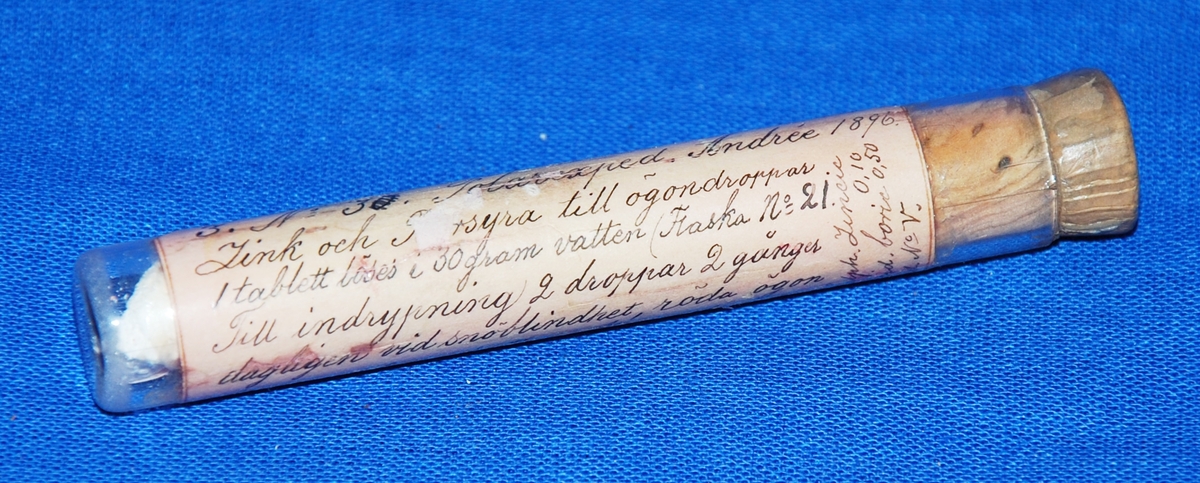 S. No 36. Polarexped. Andrée 1896.
Zink och syra till ögondroppar
1 tablett löses i 30 gram vatten (Flaska No 21.
Till indrypning) 2 droppar 2 gånger
dagligen vid snöblindhet, röda ögon
Zincic 0,10
boric 0,50
No V.